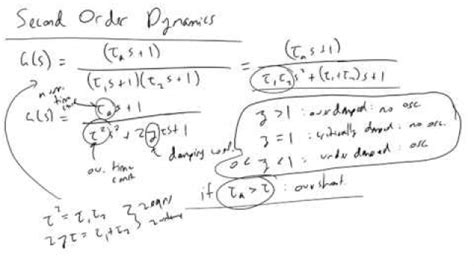 Second Order Dynamics
G(s) = (τₐs+1) / ((τ₁s+1)(τ₂s+1)) = (τₐs+1) / (τ₁τ₂s²+(τ₁+τ₂)s+1)
num. time const
G(s) = (τₐs+1) / (τ²s²+2ζτs+1)
ov. time const
damping
ζ > 1 : overdamped : no osc.
ζ = 1 : critically damped : no osc.
0 < ζ < 1 : under damped : osc
if τₐ > τ : overshoot.
τ² = τ₁τ₂
2ζτ = τ₁+τ₂
2 eqns